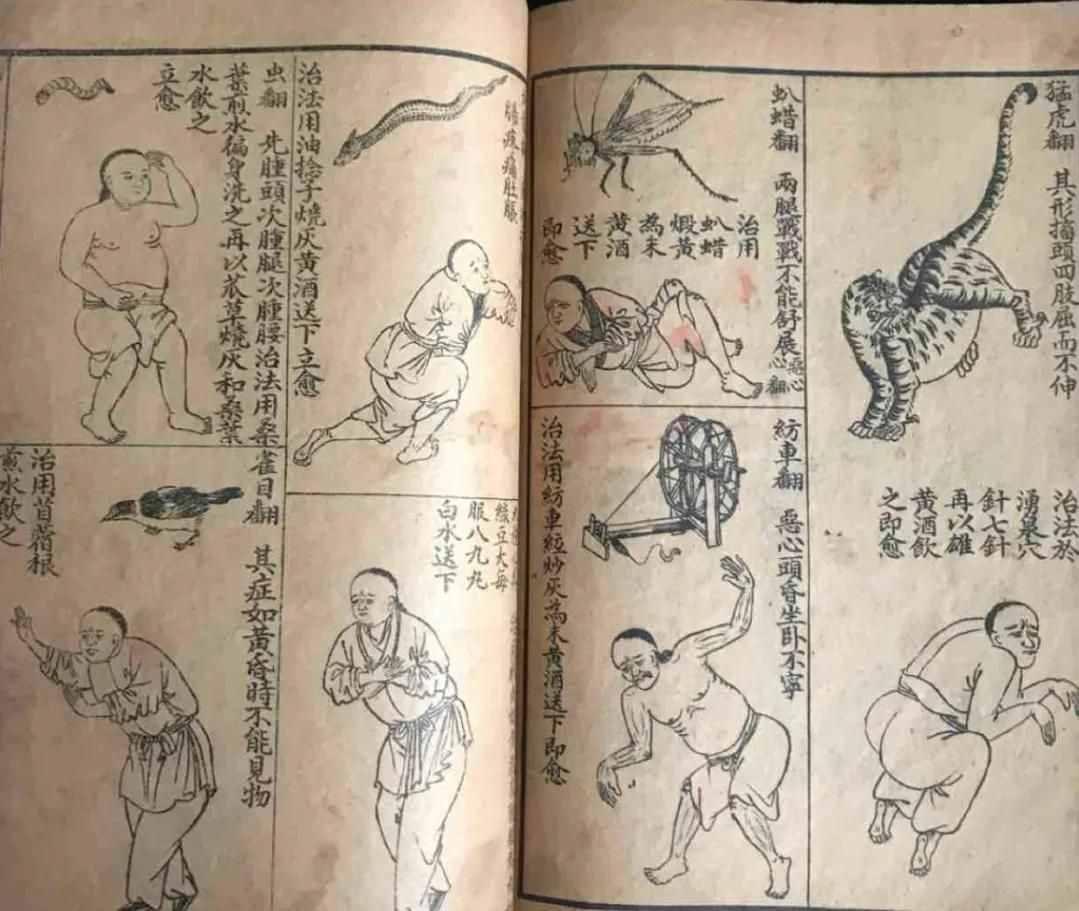 猛虎翻　其形摘頭四肢屈而不伸
治法於
湧墓穴
針七針
再以雄
黃酒飲
之即愈
虯蜡翻　兩腿戰戰不能舒展惡心心翻
治用
虯蜡
煅黃
為末
黃酒
送下
即愈
紡車翻　惡心頭昏坐卧不寧
治法用紡車絃炒灰為末黃酒送下即愈
疼痛肚脹
治法用油捻子燒灰黃酒送下立愈
菉豆大每
服八九丸
白水送下
虫翻　先腫頭次腫腿次腫腰治法用桑
葉煎水徧身洗之再以衣草燒灰和桑葉
水飲之
立愈
雀目翻　其症如黃昏時不能見物
治用苜蓿根
煎水飲之